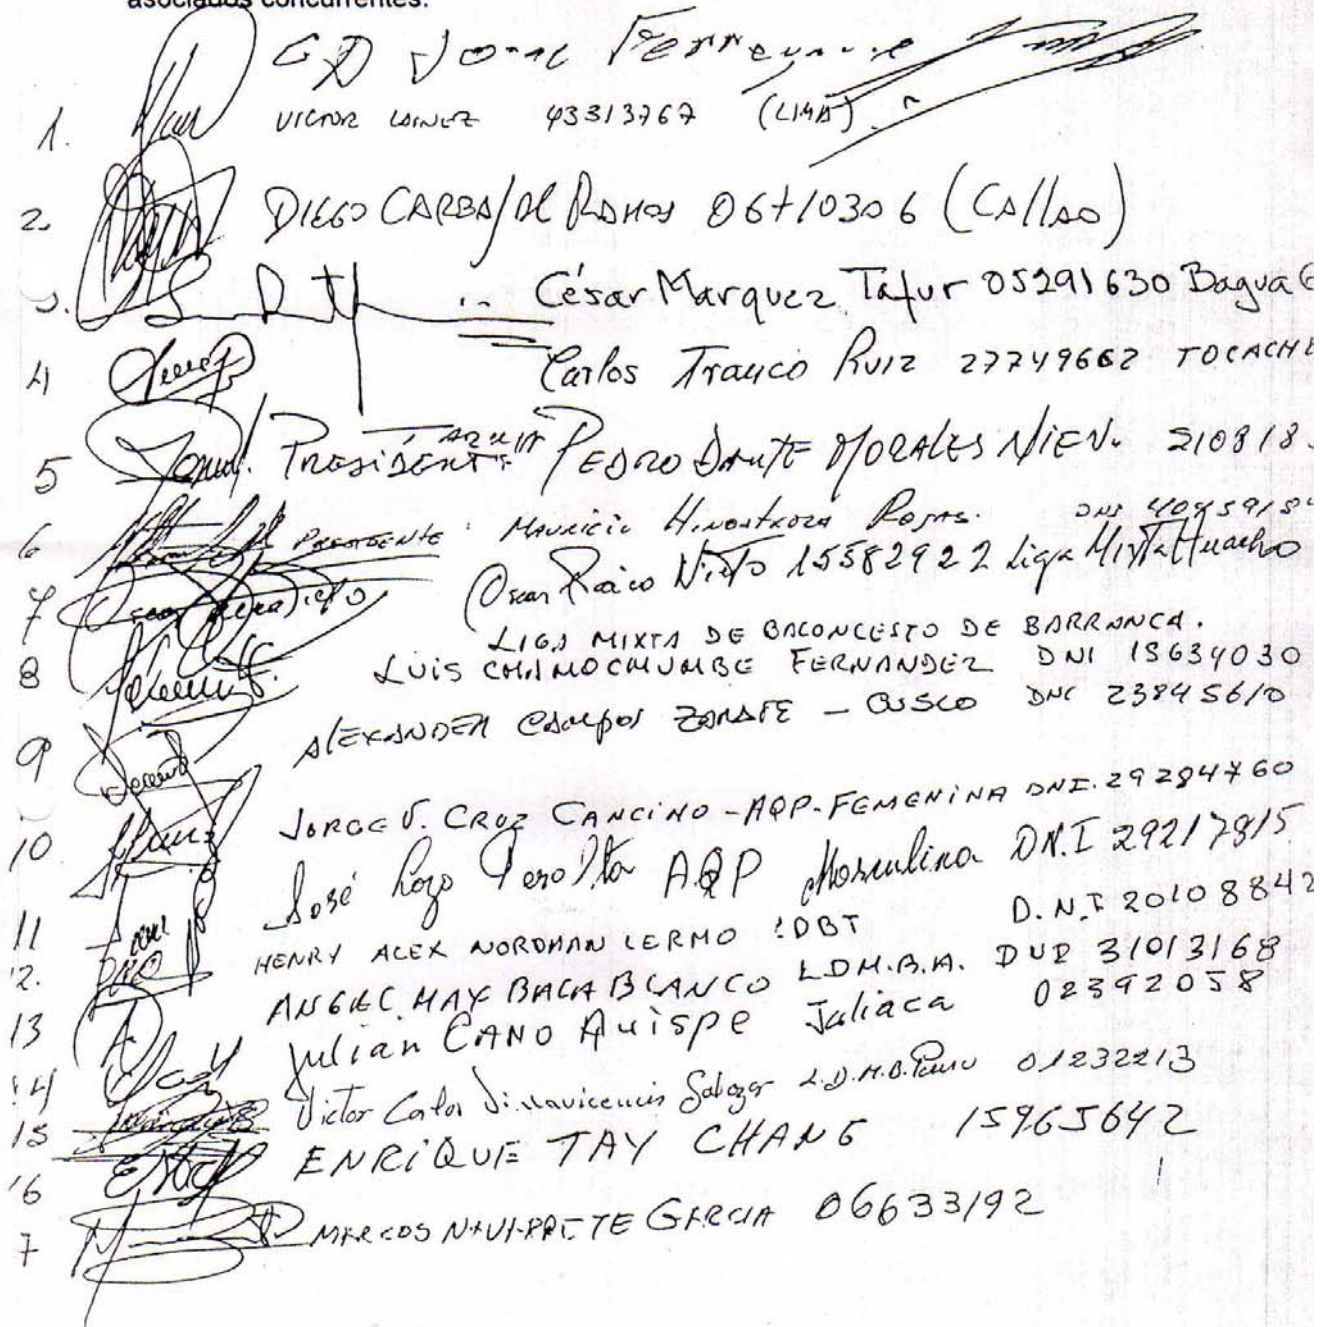 asociados concurrentes.
1. VICTOR LAINEZ 43313767 (LIMA)
2. DIEGO CARBAJAL RAMOS 06710306 (Callao)
3. César Marquez Tafur 05291630 Bagua G
4 Carlos Franco Ruiz 27749662 TOCACHE
5 PRESIDENTE PEDRO DANTE MORALES 210818
6 PRESIDENTE: Mauricio Hinostroza Rojas. DNI
7 Oscar Nieto 15582922 Liga Mixta Huacho
LIGA MIXTA DE BALONCESTO DE BARRANCA.
8 LUIS CHAMOCHUMBE FERNANDEZ DNI 15634030
9 ALEXANDER Campos ZARATE - CUSCO DNI 23845610
10 JORGE V. CRUZ CANCINO - AQP-FEMENINA DNI. 29284760
11 José AQP Masculina DN.I 29217815
12. HENRY ALEX NORDMAN LERMO LDBT D.N.I 20108842
13 ANGEL MAX BACA BLANCO L.D.M.B.A. 31013168
14 Julian CANO Quispe Juliaca 02392058
15 Victor Carlos Salazar L.D.M.B. Puno 01232213
16 ENRiQUE TAY CHANG 15965642
7 MARCOS NAVARRETE GARCIA 06633192